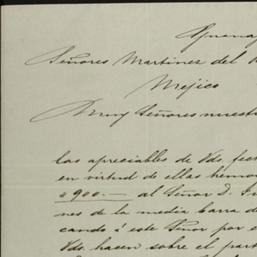 Señores Martinez del
Mejico
Muy Señores nuestr
las apreciables de Vds. fec
en virtud de ellas hemo
$900.— al Señor D.
nes de la media barra d
cando á este Señor por e
Vds hacen sobre el part